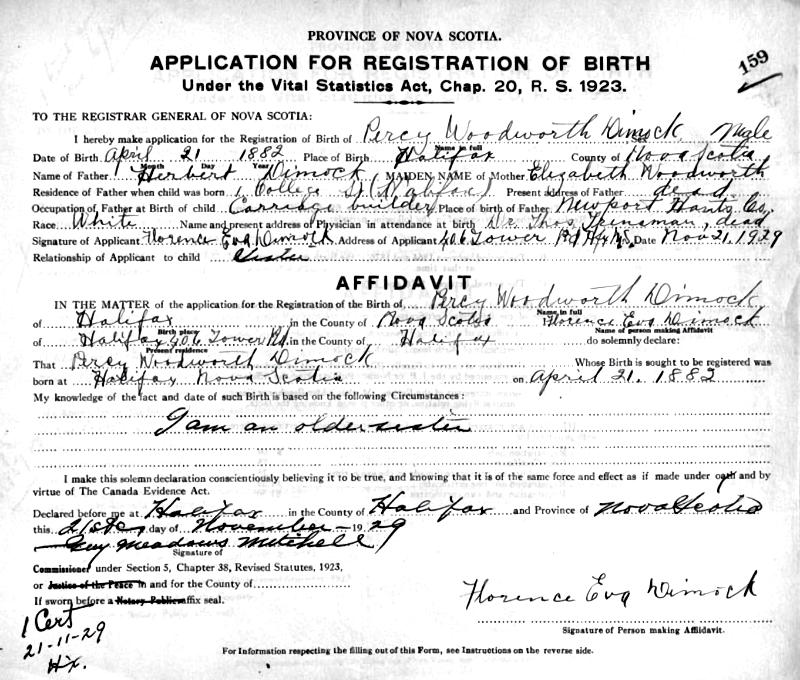 PROVINCE OF NOVA SCOTIA.
APPLICATION FOR REGISTRATION OF BIRTH
159
Under the Vital Statistics Act, Chap. 20, R. S. 1923.
TO THE REGISTRAR GENERAL OF NOVA SCOTIA:
I hereby make application for the Registration of Birth of Percy Woodworth Dimock Sex Male
Name in full
Date of Birth April 21 1882 Place of Birth Halifax County of Nova Scotia
Month Day Year
Name of Father Herbert Dimock MAIDEN NAME of Mother Elizabeth Woodworth
Residence of Father when child was born 1 College St (Halifax) Present address of Father dead
Occupation of Father at Birth of child Carriage builder Place of birth of Father Newport Hants Co.
Race White Name and present address of Physician in attendance at birth Dr. Thos dead
Signature of Applicant Florence Eva Dimock Address of Applicant 406 Tower Rd Hfx NS. Date Nov 21, 1929
Relationship of Applicant to child Sister
AFFIDAVIT
IN THE MATTER of the application for the Registration of the Birth of Percy Woodworth Dimock
Name in full
of Halifax in the County of Nova Scotia Florence Eva Dimock
Birth place Name of person making Affidavit
of Halifax 406 Tower Rd. in the County of Halifax do solemnly declare:
Present residence
That Percy Woodworth Dimock Whose Birth is sought to be registered was
born at Halifax Nova Scotia on April 21. 1882
My knowledge of the fact and date of such Birth is based on the following Circumstances:
I am an older sister
I make this solemn declaration conscientiously believing it to be true, and knowing that it is of the same force and effect as if made under oath and by
virtue of The Canada Evidence Act.
Declared before me at Halifax in the County of Halifax and Province of Nova Scotia
this 21st day of November 1929
Guy Meadows Mitchell
Signature of
Commissioner under Section 5, Chapter 38, Revised Statutes, 1923,
or Justice of the Peace in and for the County of
If sworn before a Notary Public affix seal.
Florence Eva Dimock
Signature of Person making Affidavit.
1 Cert
21-11-29
Hx.
For Information respecting the filling out of this Form, see Instructions on the reverse side.